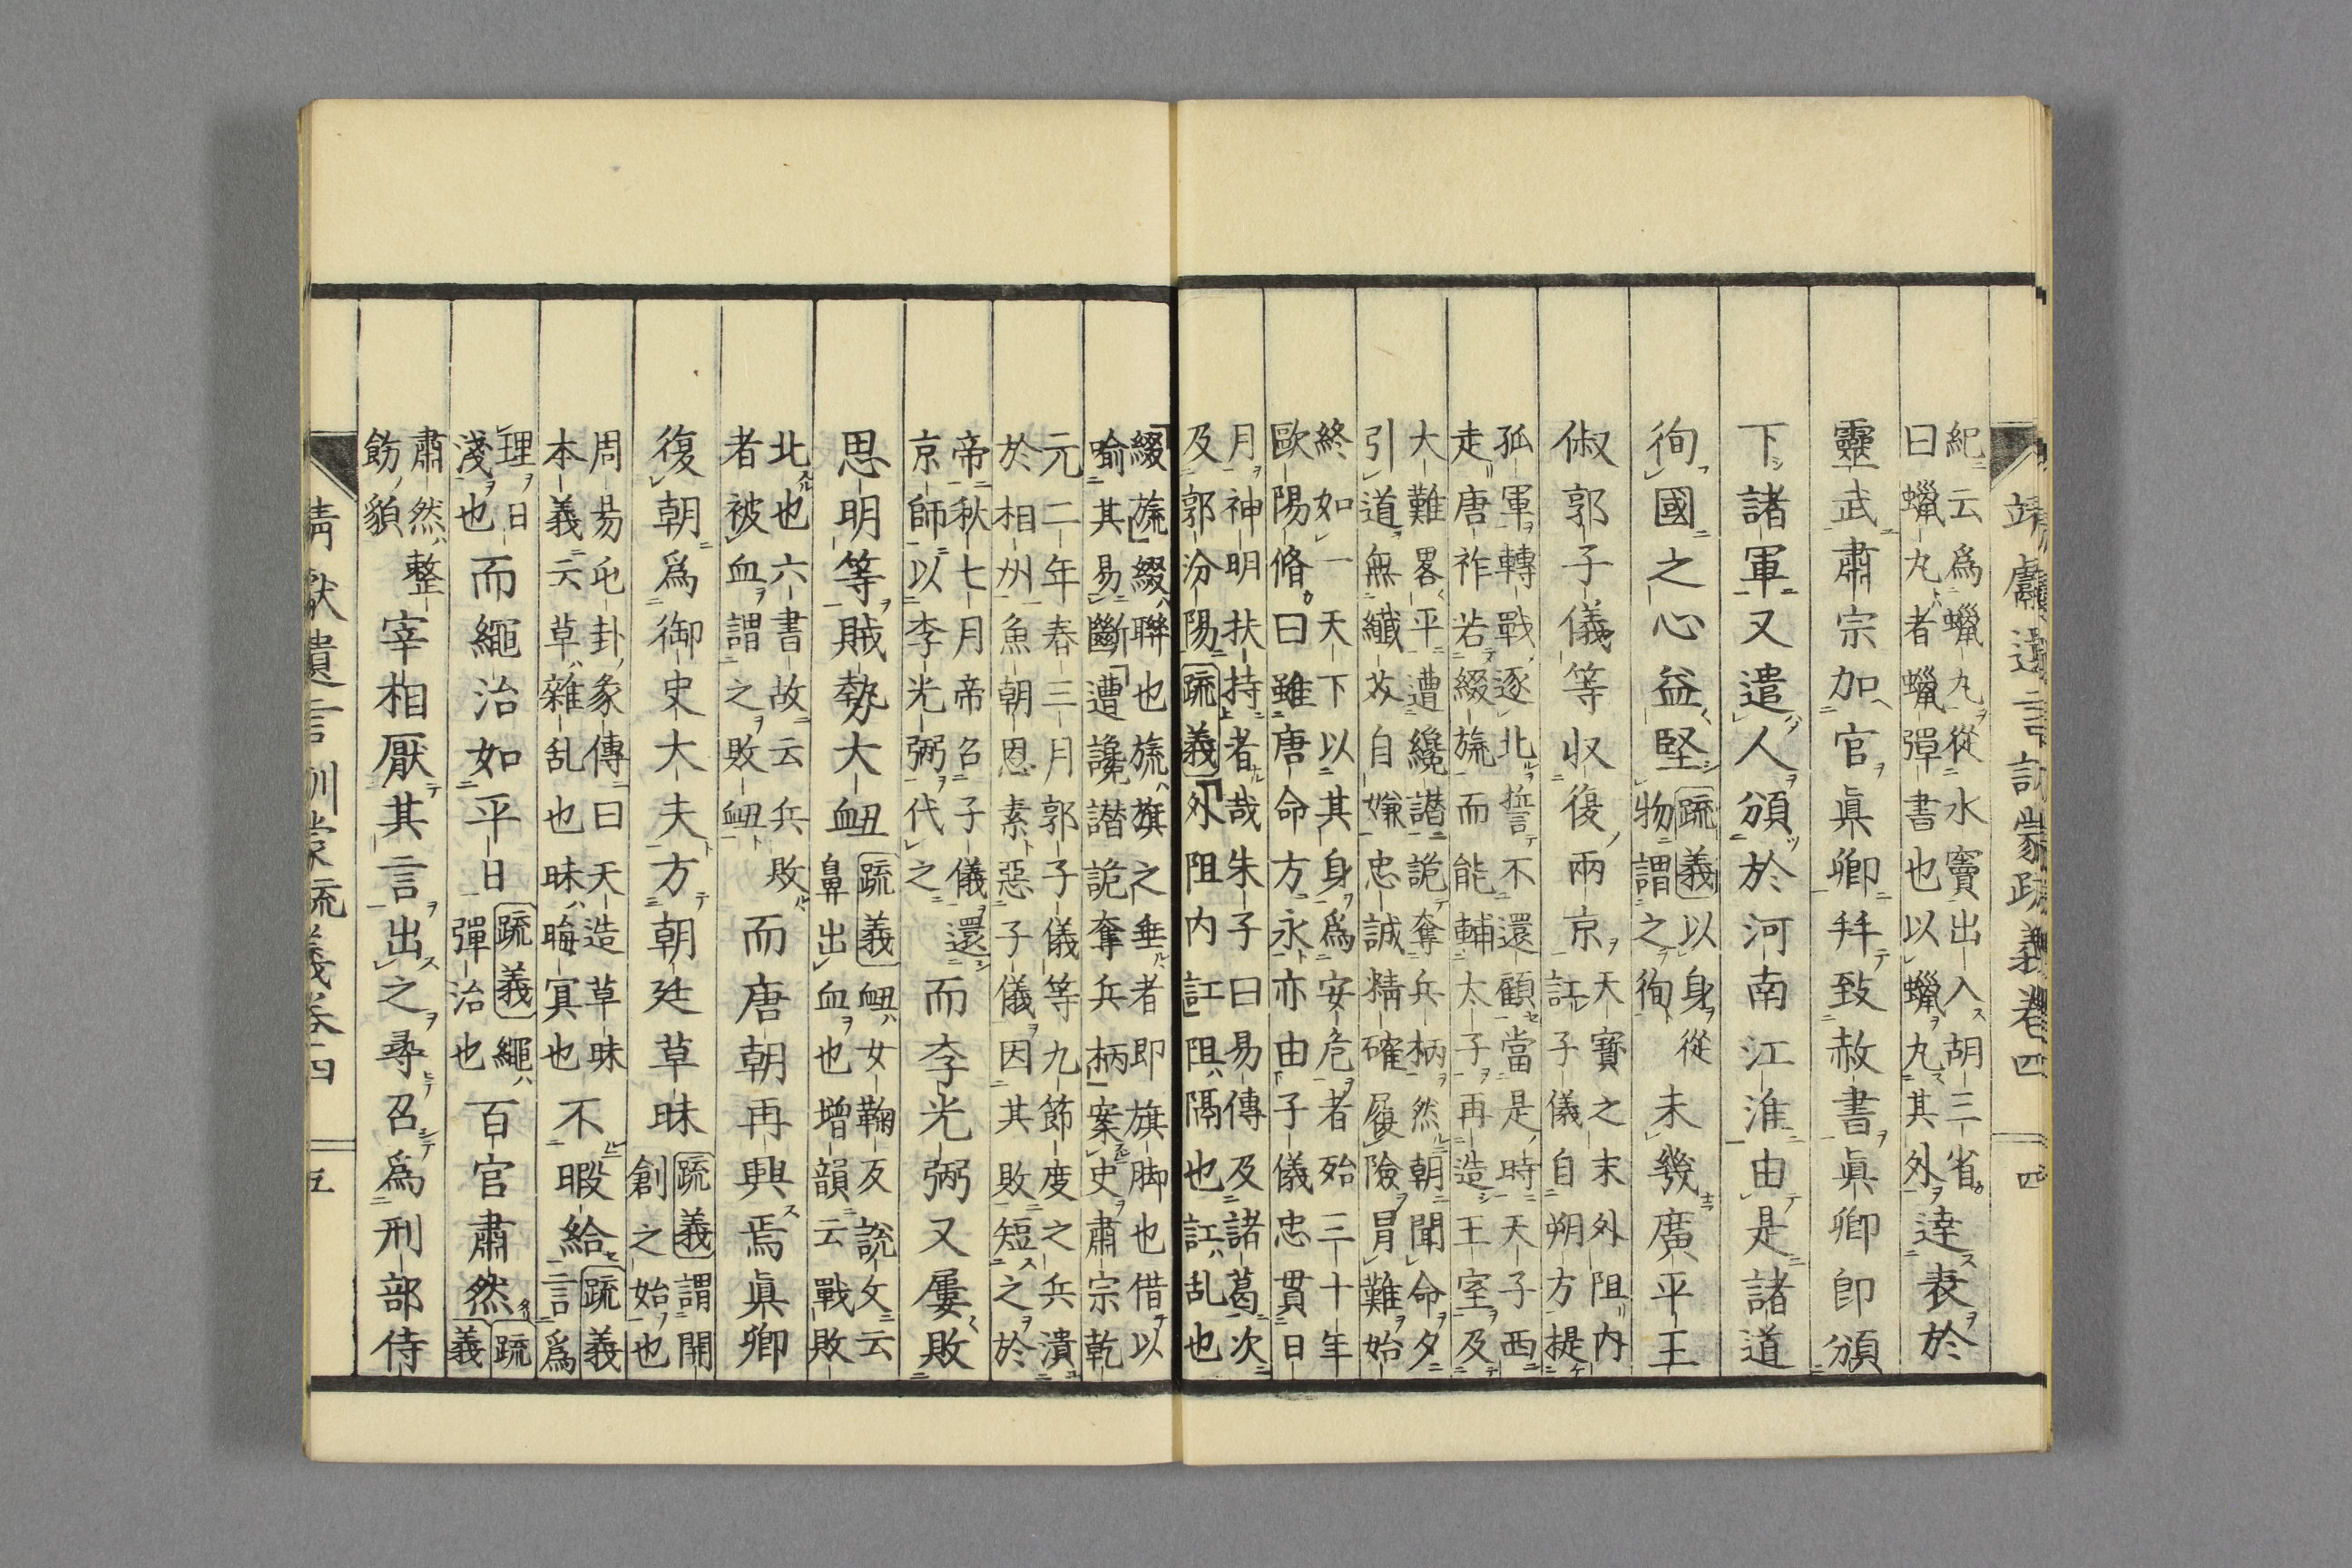 靖獻遺言訓蒙疏義卷四 四
紀云爲蠟丸從水竇出入胡三省
曰蠟丸者蠟彈書也以蠟丸其外
達表於
靈武肅宗加官眞卿拜致赦書眞卿卽頒
下諸軍又遣人頒於河南江淮由是諸道
徇國之心益堅
疏義以身從
物謂之徇
未幾廣平王
俶郭子儀等收復兩京
天寶之末外阻内
訌子儀自朔方提
孤軍轉戰逐北誓不還顧當是時天子西
走唐祚若綴旒而能輔太子再造王室及
大難畧平遭纔譖詭奪兵柄然朝聞命夕
引道無纖芥自嫌忠誠精確履險冒難始
終如一天下以其身爲安危者殆三十年
歐陽脩曰雖唐命方永亦由子儀忠貫日
月神明扶持者哉朱子曰易傳及諸葛次
及郭汾陽疏義外阻内訌阻隔也訌乱也
綴旒綴聯也旒旗之垂者即旗脚也借以
喻其易斷遭讒譖詭奪兵柄案史肅宗乾
元二年春三月郭子儀等九節度之兵潰
於相州魚朝恩素惡子儀因其敗短之於
帝秋七月帝召子儀還
京師以李光弼代之
而李光弼又屢敗
思明等賊勢大衄
疏義衄女鞠反説文云
鼻出血也增韻云戰敗
北也六書故云兵敗
者被血謂之敗衄
而唐朝再興焉眞卿
復朝爲御史大夫方朝廷草昧
疏義謂開
創之始也
周易屯卦彖傳曰天造草昧
本義云草雜乱也昧晦冥也
不暇給
疏義
言爲
理日
淺也
而繩治如平日
疏義繩
彈治也
百官肅然
疏
義
肅然整
飭貌
宰相厭其言出之尋召爲刑部侍
靖獻遺言訓蒙疏義卷四 五